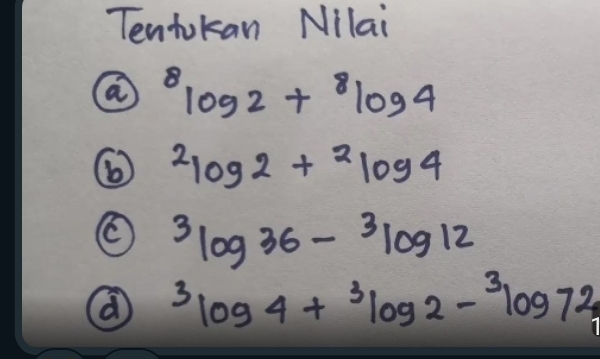 Tentukan Nilai
ⓐ ⁸log 2 + ⁸log 4
ⓑ ²log 2 + ²log 4
ⓒ ³log 36 - ³log 12
ⓓ ³log 4 + ³log 2 - ³log 72
1